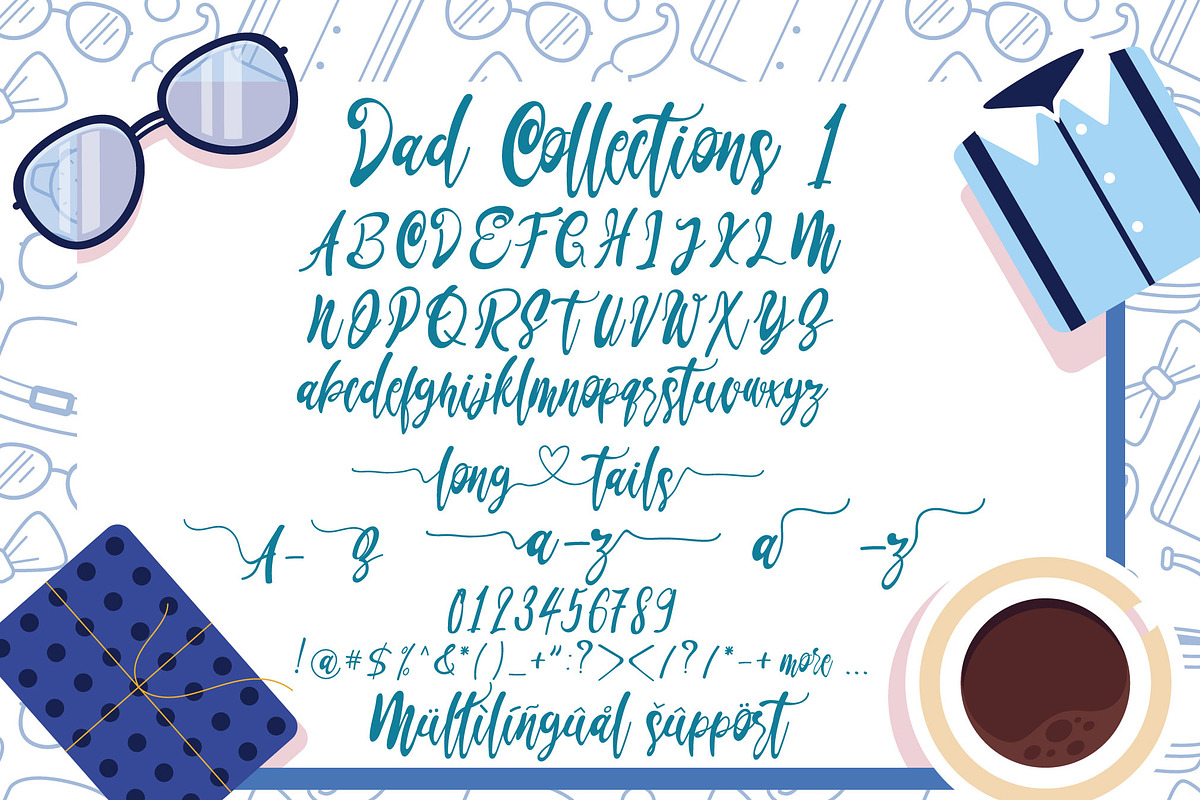 Dad Collections 1
ABCDEFGHIJKLM
NOPQRSTUVWXYZ
abcdefghijklmnopqrstuvwxyz
long tails
A- Z a-z a -z
0123456789
!@#$%^&*()_+“:?><{/?/*-+ more ...
Mültìlíñgûål šûppört